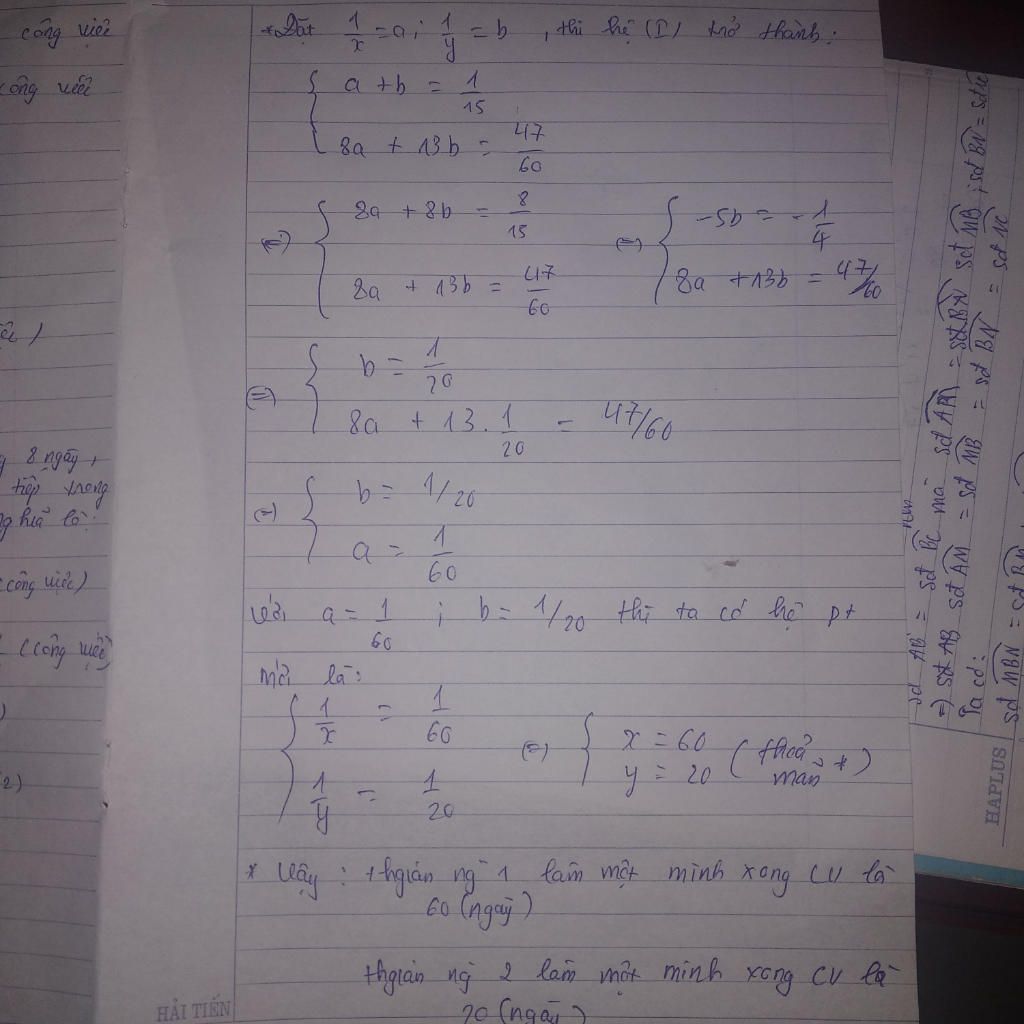 công việc
công việc
8 ngày,
tiếp trong
nghĩa là:
công việc)
(công việc)
2)
* Đặt 1/x = a ; 1/y = b , thì hệ (I) trở thành:
a + b = 1/15
8a + 13b = 47/60
(=) 8a + 8b = 8/15 (=) -5b = -1/4
8a + 13b = 47/60 8a + 13b = 47/60
(=) b = 1/20
8a + 13 . 1/20 = 47/60
(=) b = 1/20
a = 1/60
Với a = 1/60 ; b = 1/20 thì ta có hệ pt
mới là:
1/x = 1/60 (=) x = 60 (thoả
1/y = 1/20 y = 20 mãn *)
* Vậy : thgian ng 1 làm một mình xong CV là
60 (ngày)
thgian ng 2 làm một mình xong CV là
20 (ngày)
HẢI TIẾN
sđ AB = sđ BC mà sđ AM = sđ BN sđ MB ; sđ BN = sđ NC
=) sđ AB sđ AM = sđ MB = sđ BN = sđ NC
Ta có:
sđ MBN = sđ BM
HAPLUS